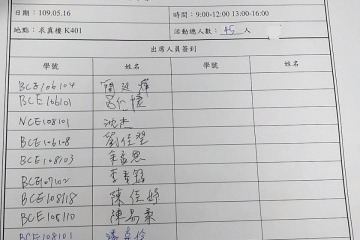 日期：109.05.16 時間：9:00-12:00 13:00-16:00
地點：求真樓 K401 活動總人數： 45 人
出席人員簽到
學號 姓名 學號 姓名
BCE106104
BCE106101
NCE108101 沈杰
BCE106108 劉佳翟
BCE108103
BCE107102
BCE108118 陳佳婷
BCE108110 陳易柔
BCE108101